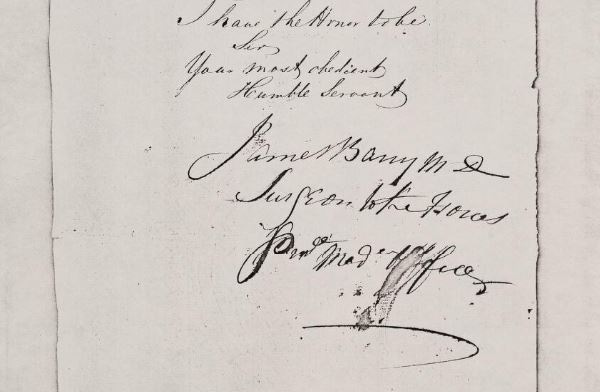 I have the Honor to be
Sir
Your most obedient
Humble Servant
James Barry M D
Surgeon to the Forces
Prin.l Med.l Officer